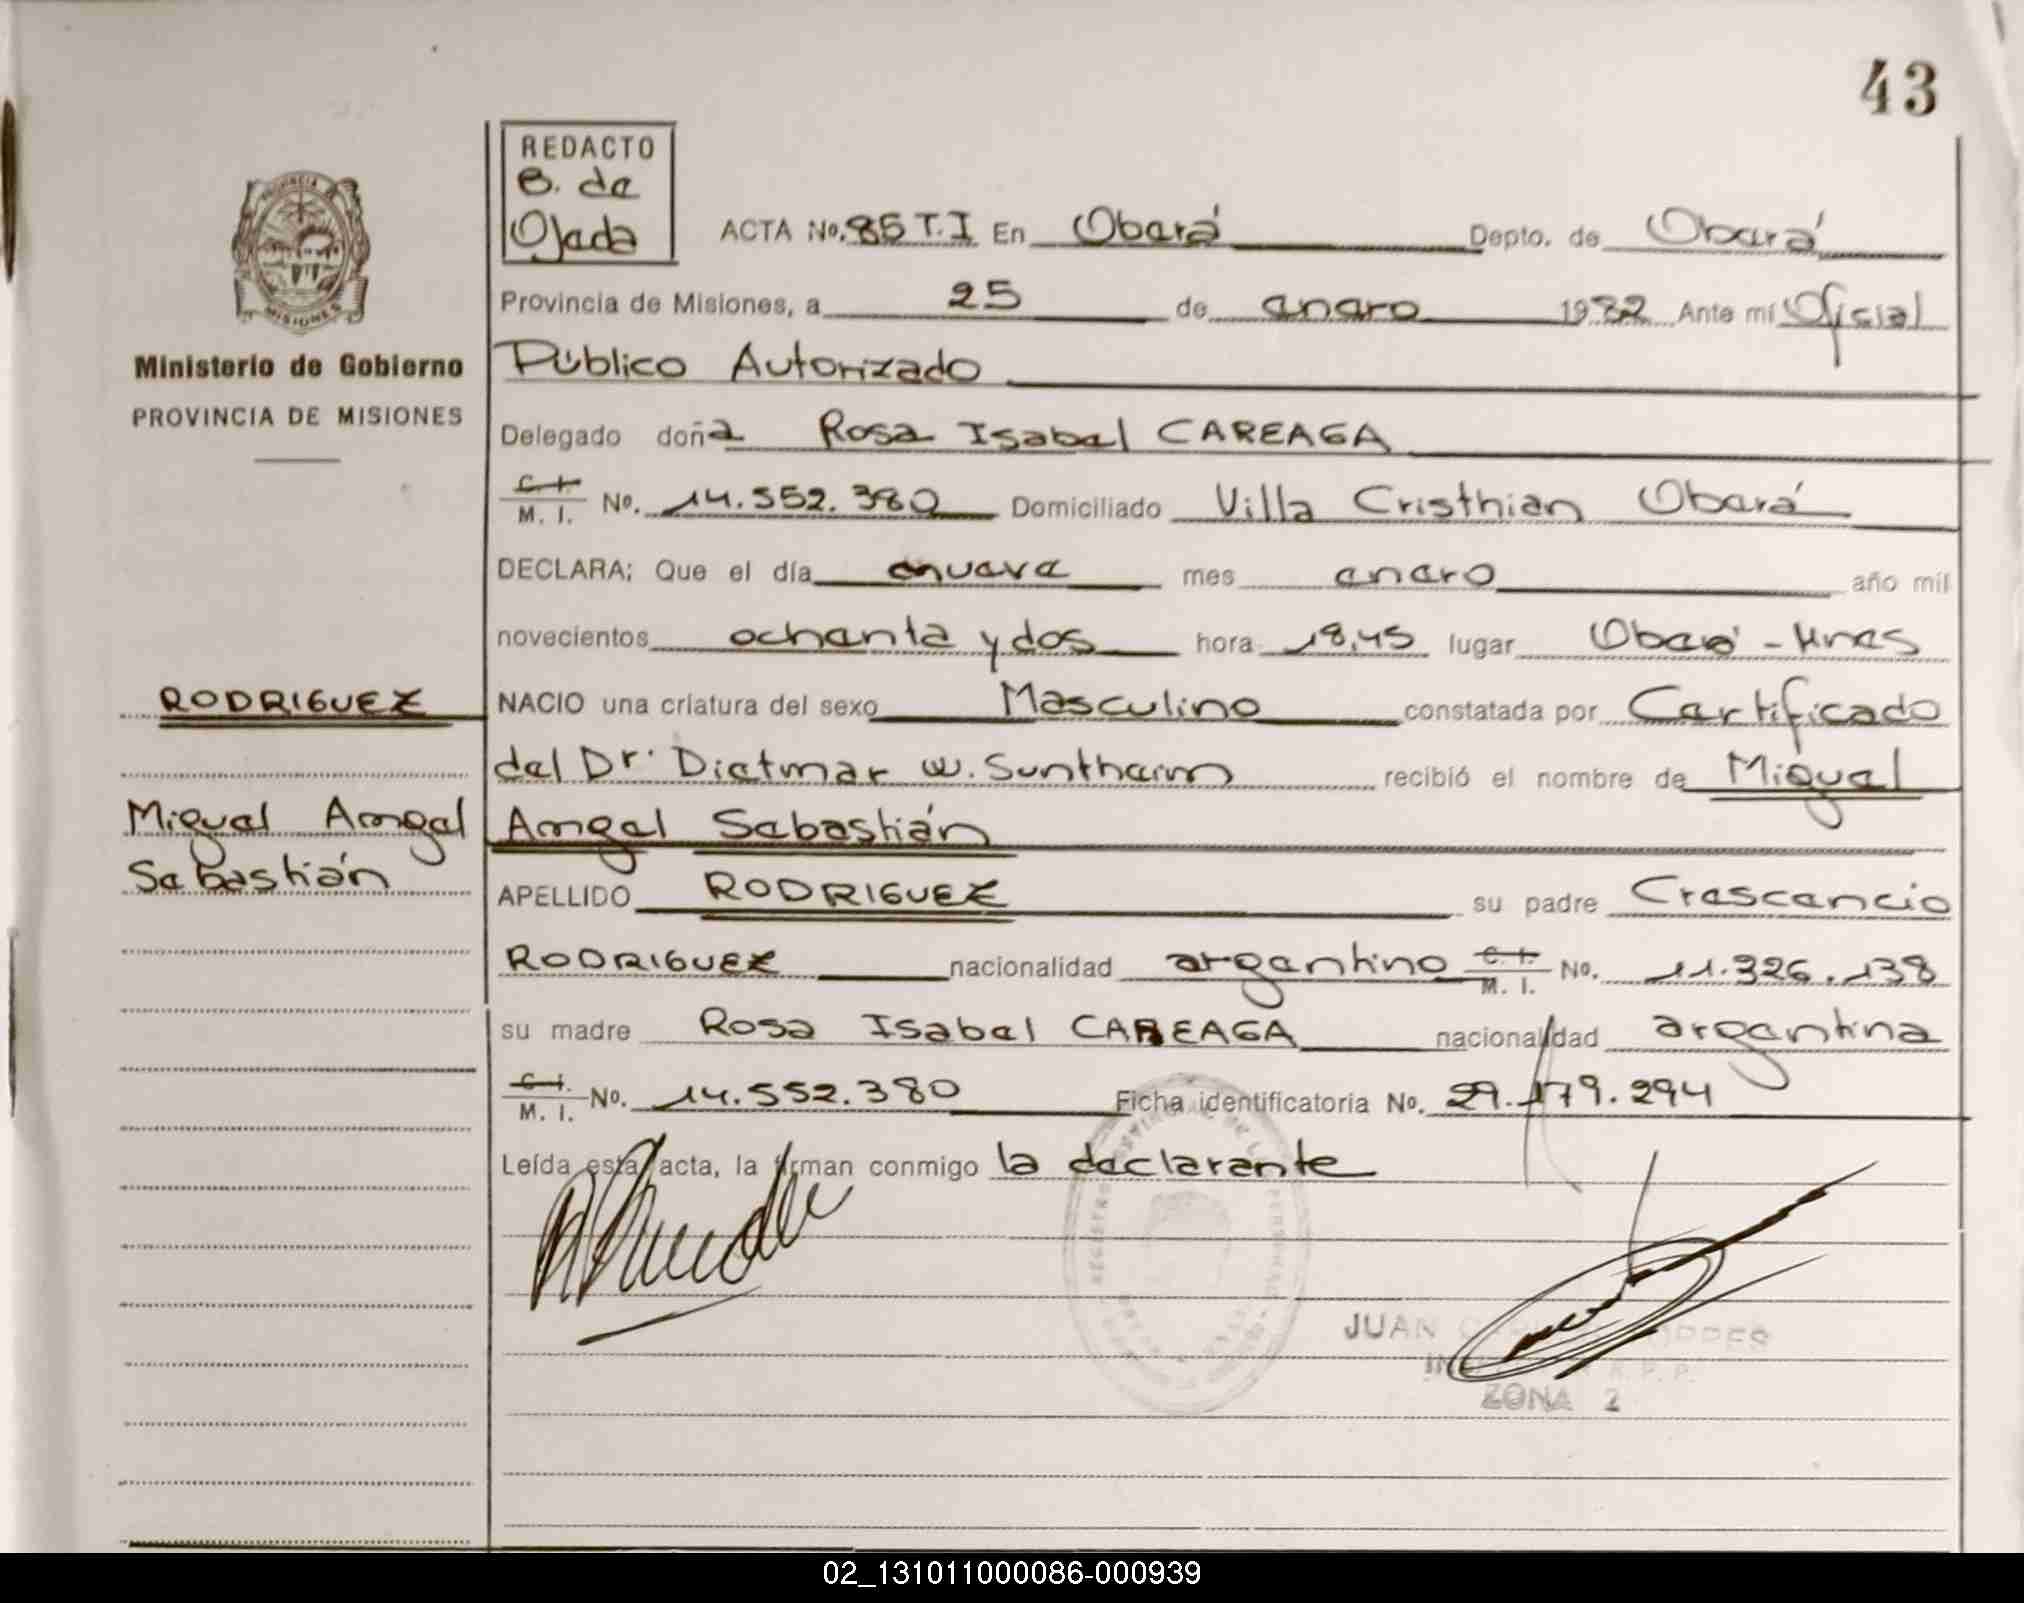 43
REDACTO
B. de
Ojeda
ACTA No. 85 T.I En Oberá Depto. de Oberá
Provincia de Misiones, a 25 de enero 1982 Ante mí Oficial
Público Autorizado
Delegado doña Rosa Isabel CAREAGA
C. I.
M. I. No. 14.552.380 Domiciliado Villa Cristhian Oberá
DECLARA; Que el día nueve mes enero año mil
novecientos ochenta y dos hora 18,45 lugar Oberá - Mnes
NACIO una criatura del sexo Masculino constatada por Certificado
del Dr. Dietmar W. Suntheim recibió el nombre de Miguel
Angel Sebastián
APELLIDO RODRIGUEZ su padre Crescencio
RODRIGUEZ nacionalidad argentino C. I. M. I. No. 11.326.138
su madre Rosa Isabel CAREAGA nacionalidad argentina
C. I.
M. I. No. 14.552.380 Ficha identificatoria No. 29.179.294
Leída esta acta, la firman conmigo la declarante
JUAN
ZONA 2
PROVINCIA
MISIONES
Ministerio de Gobierno
PROVINCIA DE MISIONES
RODRIGUEZ
Miguel Angel
Sebastián
02_131011000086-000939